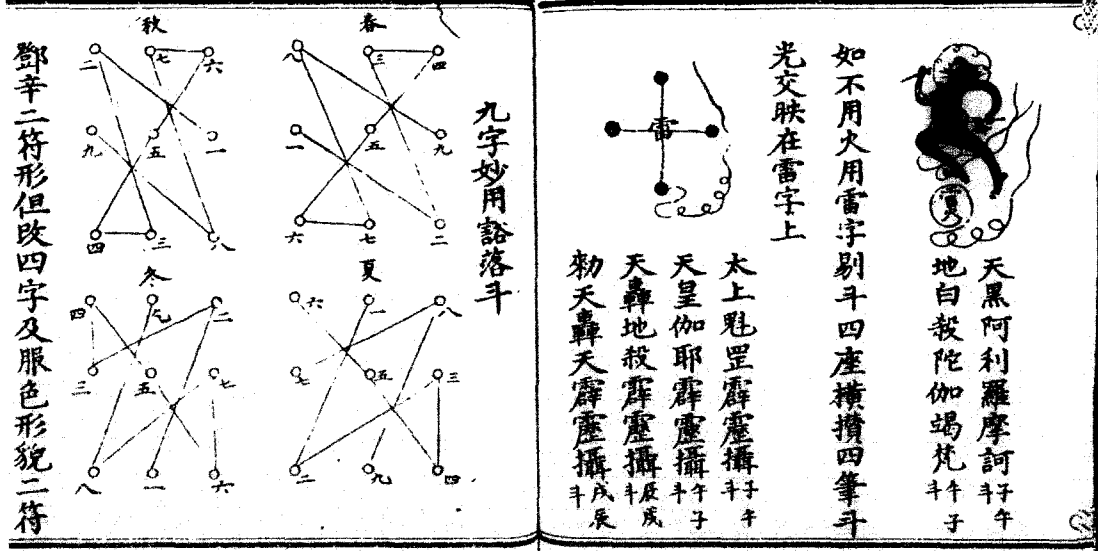 天黑阿利羅摩訶子午斗
地白殺陀伽竭梵午子斗
如不用火用雷字别斗四座横攢四筆斗
光交映在雷字上
雷
太上魁罡霹靂攝子午斗
天皇伽耶霹靂攝午子斗
天轟地殺霹靂攝辰戌斗
勑天轟天霹靂攝戌辰斗
九字妙用豁落斗
春
八 三 四
一 五 九
六 七 二
夏
六 一 八
七 五 三
二 九 四
秋
二 七 六
九 五 一
四 三 八
冬
四 九 二
三 五 七
八 一 六
鄧辛二符形但改四字及服色形貌二符